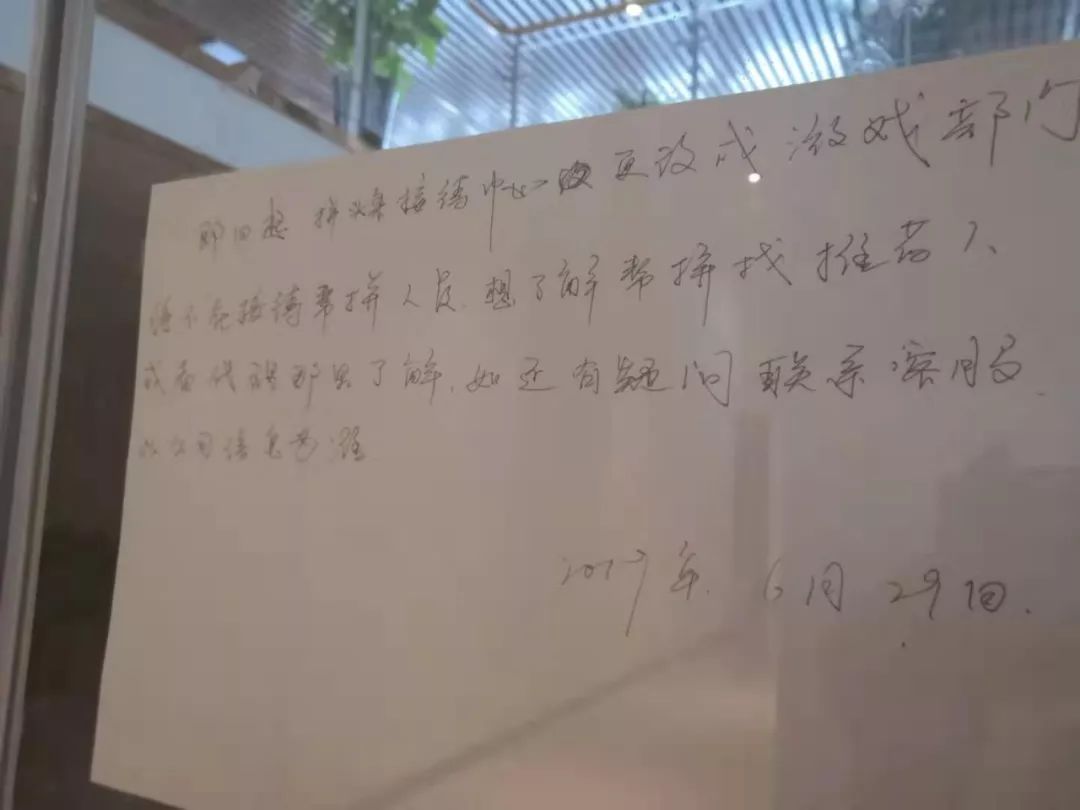 即日起 拼烧接待中心 更改成 游戏部门
将不在接待帮拼人员.想了解帮拼找推荐人
或者代理那里了解.如还有疑问联系客服
以公司信息为准
2017年.6月29日.